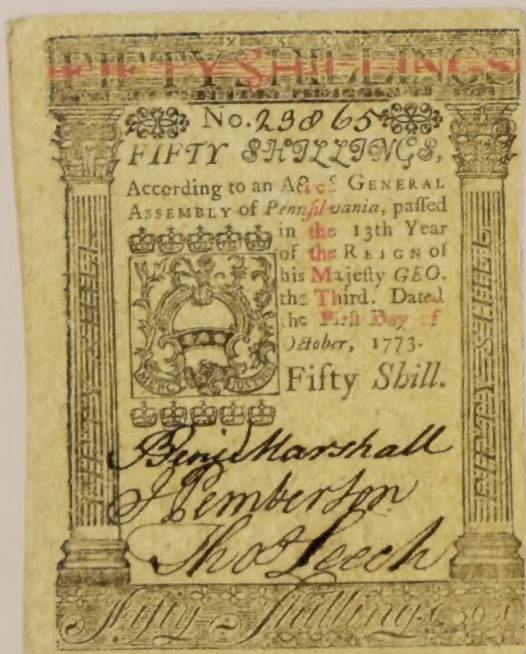 FIFTY SHILLINGS
No. 23865
FIFTY SHILLINGS,
According to an Act of GENERAL
ASSEMBLY of Pennſilvania, paſſed
in the 13th Year
of the REIGN of
his Majeſty GEO.
the Third. Dated
the Firſt Day of
October, 1773.
MERCY JUSTICE
Fifty Shill.
FIFTY SHILL.
FIFTY SHILL.
Benjn Marshall
J Pemberton
Thos Leech
Fifty Shillings